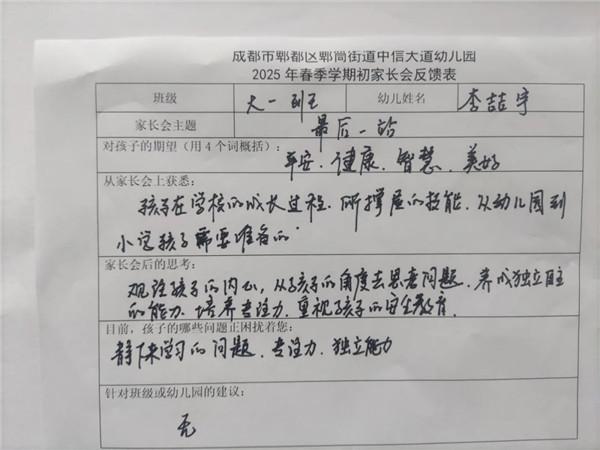 成都市郫都区郫筒街道中信大道幼儿园
2025年春季学期初家长会反馈表
班级 大一班 幼儿姓名 李喆宇
家长会主题 最后一站
对孩子的期望（用4个词概括）：
平安、健康、智慧、美好
从家长会上获悉：
孩子在学校的成长过程、所撑握的技能、从幼儿园到
小学孩子需要准备的
家长会后的思考：
观注孩子的内心，从孩子的角度去思考问题、养成独立自主
的能力、培养专注力、重视孩子的安全教育.
目前，孩子的哪些问题正困扰着您：
静下来学习的问题、专注力、独立能力
针对班级或幼儿园的建议：
无